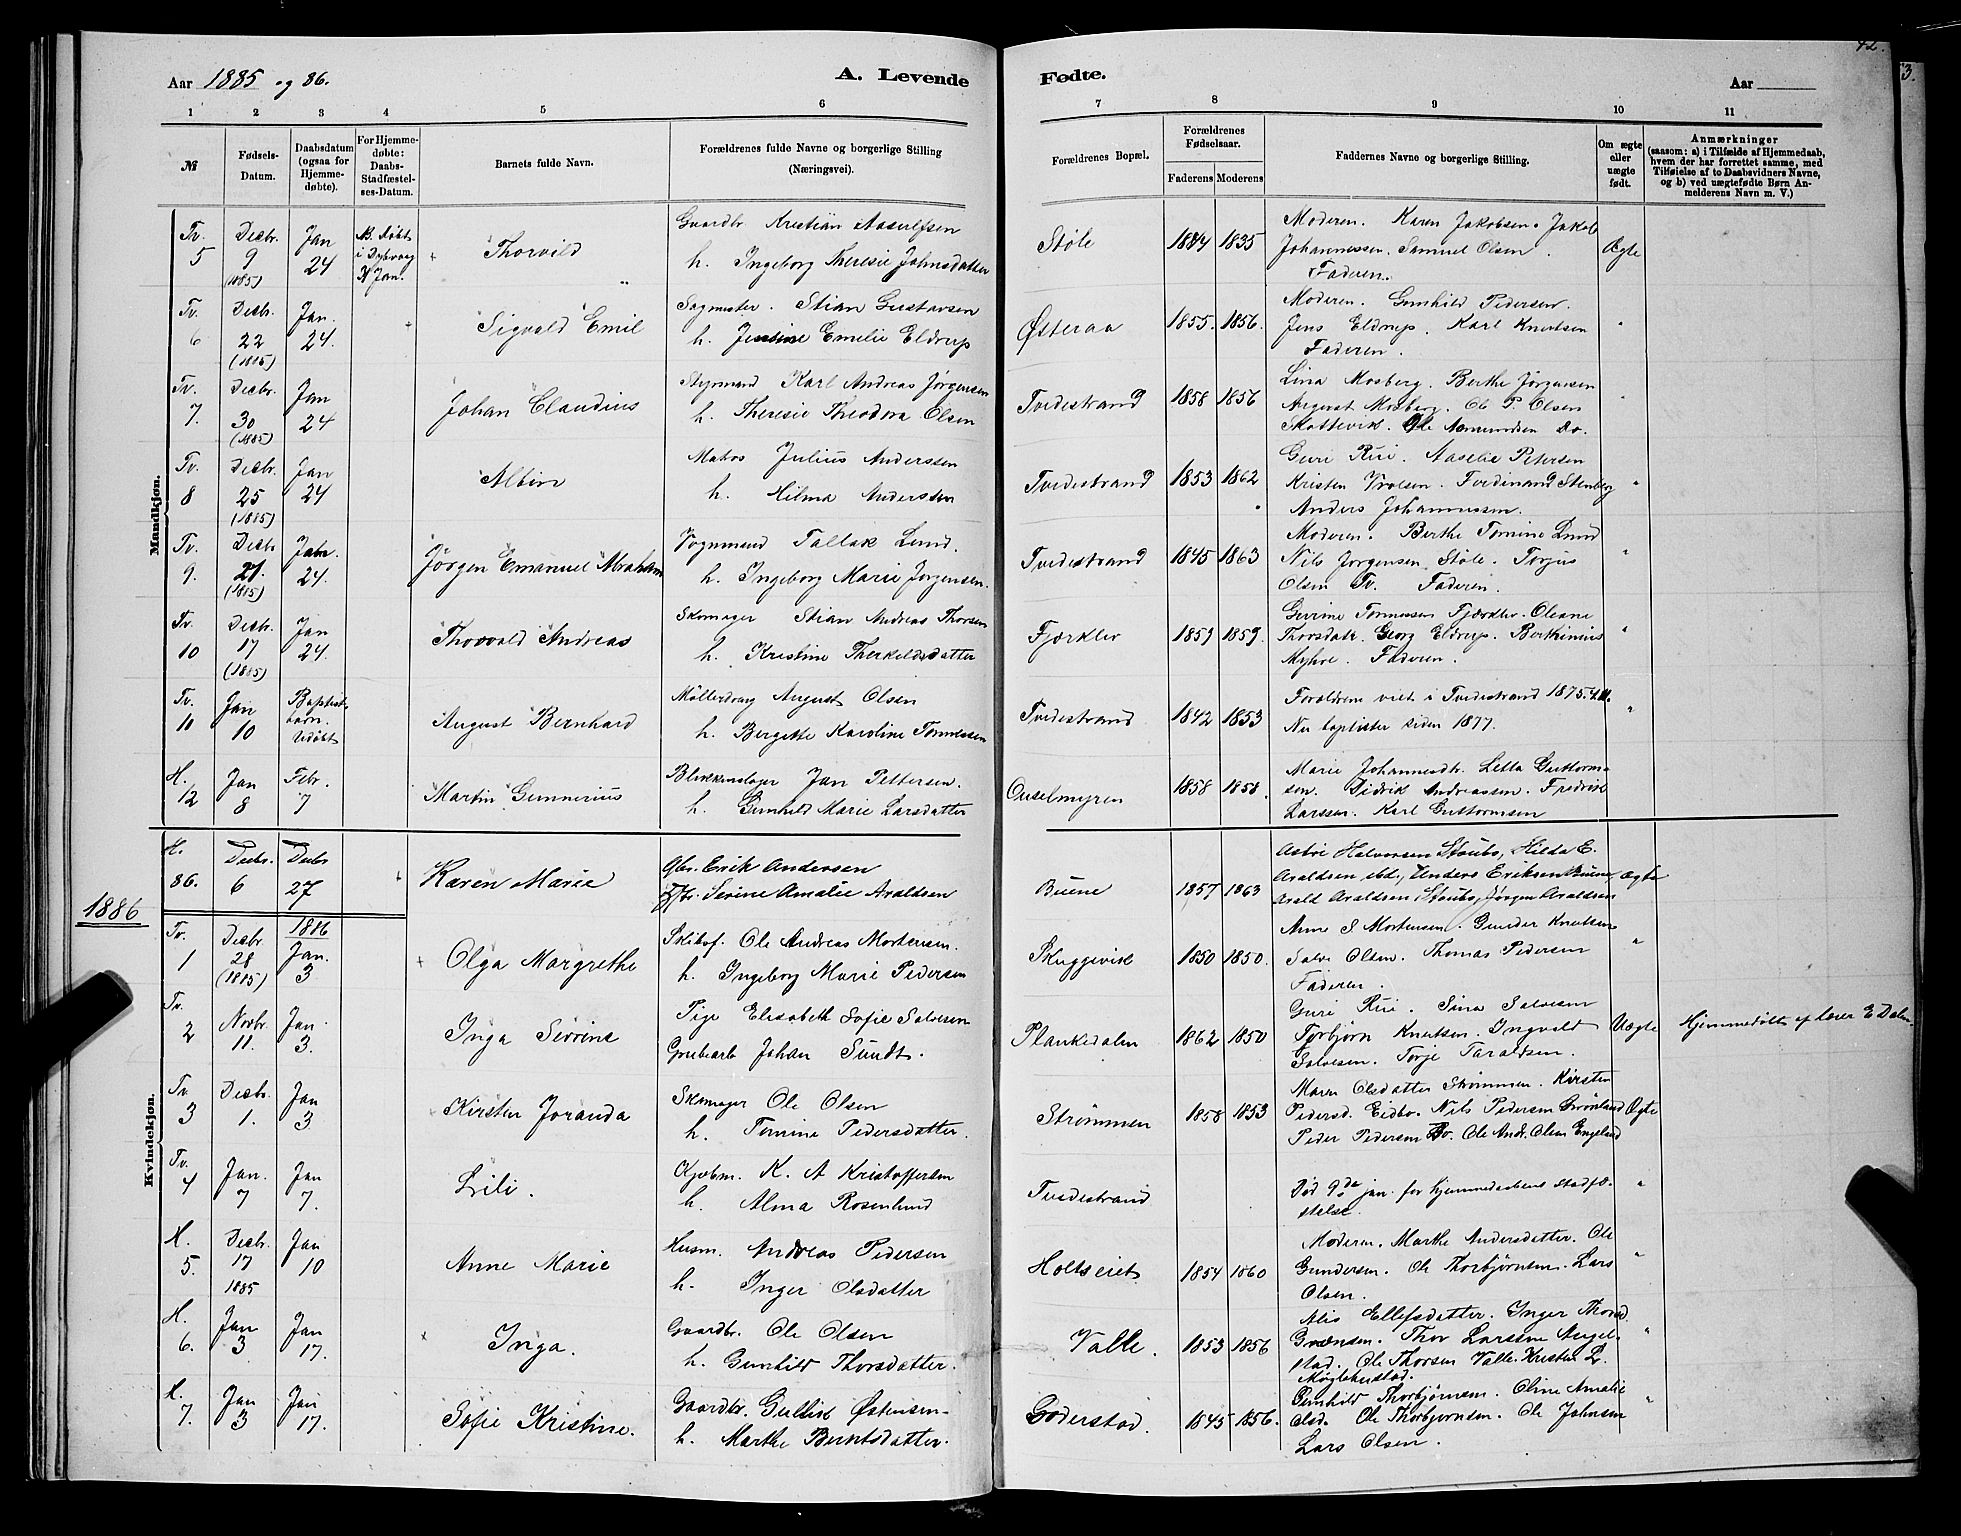 Aar 1885 og 86.
A. Levende
Fødte.
Aar
42.
1 2 3 4 5 6 7 8 9 10 11
№
Fødsels-Datum.
Daabsdatum (ogsaa for Hjemmedøbte).
For Hjemmedøbte: Daabs-Stadfæstelses-Datum.
Barnets fulde Navn.
Forældrenes fulde Navne og borgerlige Stilling (Næringsvei).
Forældrenes Bopæl.
Forældrenes Fødselsaar.
Faderens Moderens
Faddernes Navne og borgerlige Stilling.
Om ægte eller uægte født.
Anmærkninger
(saasom: a) i Tilfælde af Hjemmedaab, hvem der har forrettet samme, med Tilføielse af to Daabsvidners Navne, og b) ved uægtefødte Børn Anmelderens Navn m. V.)
Mandkjøn.
Tv. 5 Decbr. 9 (1885) Jan 24
Thorvild
Gaardbr Kristian Aasulfsen
h. Ingeborg Theresie Johnsdatter
Støle 1835
Moderen. Karen Jakobsen. Jakob
Johannessen. Samuel Olsen.
Faderen.
Ægte
Tv. 6 Decbr. 22 (1885) Jan. 24.
Sigvald Emil
Sagmester. Stian Gustavsen
h. Emelie Eldrup
Østeraa 1855. 1856.
Moderen. Gunhild Pedersen.
Jens Eldrup. Karl Knutsen
Faderen.
Tv. 7. Decbr. 30 (1885) Jan 24
Johan Claudius
Styrmand Karl Andreas Jørgensen
h. Theresie Theodora Olsen
Tvedestrand 1858 1856
Lina Mosberg. Berthe Jørgensen
August Mosberg. Ole P. Olsen
Skottevik. Ole Aamundsen Do.
Tv. 8 Decbr. 25 (1885) Jan 24
Albin
Matros Julius Anderssen
h. Hilma Anderssen
Tvedestrand 1853 1862
Guri Rui. Aaselie Petersen
Kristen Vrolsen. Ferdinand Stenberg
Anders Johannessen.
Tv. 9. Decbr 21. (1885) Jabr. 24.
Jørgen Emanuel Abraham
Vognmand Tallak Lund.
h. Ingeborg Marie Jørgensen.
Tvedestrand 1845 1863
Moderen. Berthe Tomine Lund
Nils Jørgensen Støle. Torjus
Olsen Tv. Faderen.
Tv. 10 Decbr. 17 (1885) Jan 24.
Thorvald Andreas
Skomager Stian Andreas Thorsen
h. Kristine Therkildsdatter
Fjærklev 1859 1859.
Tonnessen Fjærklev. Oleane
Thorsdatr. Georg Eldrup. Berthinius
Myhre. Faderen.
Tv. 10 Jan 10 Baptistbarn. Udøbt
August Bernhard
Møllerdrag August Olsen
h. Bergitte Karoline Tonnessen
Tvedestrand 1842 1853
Forældrene viet i Tvedestrand 1875.
Nu baptister siden 1877.
H. 12 Jan 8 Febr. 7
Martin Gunnerius
Blikkenslager Jan Pettersen.
h. Gunhild Marie Larsdatter
Ouselmyren 1858 1858.
Marie Johannesdtr. Letta Guttorm-
sen. Didrik Andreassen. Fredrik
Larssen. Karl Guttormsen
H. 86. Decbr. 6 Decbr 27
Karen Marie
Gbr. Erik Andersen
Serine Amalie Araldsen
Buene 1857 1863
Astri Halvorsen Staubø, Hilda E.
Araldsen ibd., Anders Eriksen Buene,
Arald Araldsen, Staubø, Jørgen Araldsen
Ægte
1886
Kvindekjøn.
Tv. 1 Decbr 28 (1885) 1886 Jan. 3
Olga Margrethe
Ole Andreas Mortensen.
h. Ingeborg Marie Pedersen
Skuggevik 1850 1850.
Anne S Mortensen. Gunder Knutsen
Salve Olsen. Thomas Pedersen
Faderen.
Tv. 2 Novbr. 11. Jan. 3.
Inga Serine
Pige Elisabeth Sofie Salvesen
Grubearb Johan Sundt.
Plankedalen 1862 1850
Guri Rui. Sina Salvesen
Torbjørn Knutsen. Ingvald
Salvesen. Torje Taraldsen.
Uægte
Hjemmedøbt af Lærer E Dalen.
Tv 3 Decbr. 1. Jan 3
Kirsten Joranda
Skomager Ole Olsen
h. Tomine Pedersdatter.
Strømmen 1858 1853
Maren Olsdatter Strømmen. Kirsten
Pedersd. Eidbo. Nils Pedersen Grønland
Peder Pedersen Do. Ole Andr. Olsen Engeland
Ægte
Tv. 4 Jan. 7 Jan 7.
Lili.
Kjøbm. K. A Kristoffersen
h. Alma Rosenlund
Tvedestrand
Død 9de jan. før hjemmedaabens stadfæ-
stelse.
H. 5. Decbr. 17 1885 Jan 10
Anne Marie
Husm. Andreas Pedersen
h. Inger Olsdatter
Holtseiet 1854 1860
Moderen. Marthe Andersdatter. Ole
Gundersen. Ole Thorbjørnsen. Lars
Olsen.
H. 6. Jan 3 Jan 17.
Inga.
Gaardbr. Ole Olsen
h. Gunhild Thorsdatter.
Valle. 1853 1856
Alis Ellefsdatter. Inger
Thor Larssen Angel-
stad. Ole Thorsen Valle.
H. 7. Jan 3 Jan 17.
Sofie Kristine.
Gaardbr. Gullik Østensen
h. Marthe Berntsdatter.
Goderstad. 1845 1856.
Gunhild Thorbjørnsen. Oline Amalie
Olsd. Ole Thorbjørnsen. Ole Johnsen
Lars Olsen.